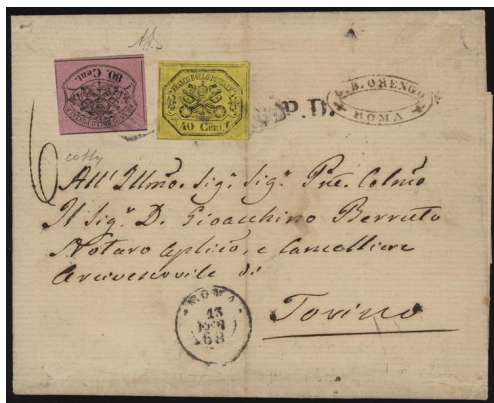 80 Cent.
FRANCO BOLLO POSTALE
40 Cent.
P.D.
G. B. ORENGO
ROMA
6
All' Illmo. Sigr. Sigr. Pne. Colmo
Il Sigr. D. Gioacchino Berruto
Notaro Aplico, e Cancelliere
Arcivescovile di
Torino
ROMA
13
68